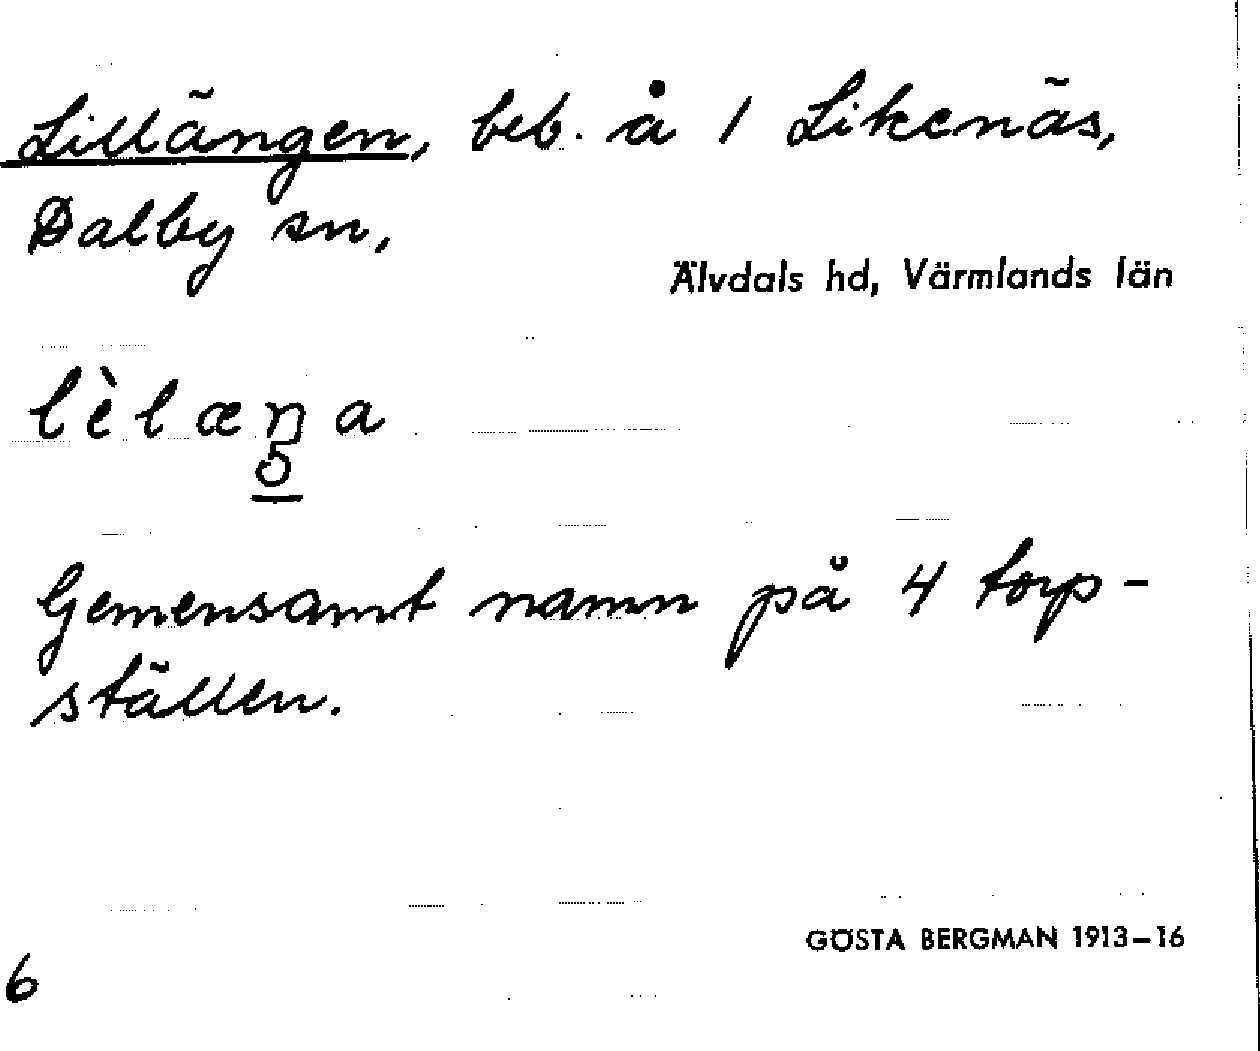 Lillängen, beb. å 1 Likenäs,
Dalby sn,
Älvdals hd, Värmlands län
lèlæŋa
5
Gemensamt namn på 4 torp-
ställen.
GÖSTA BERGMAN 1913–16
6